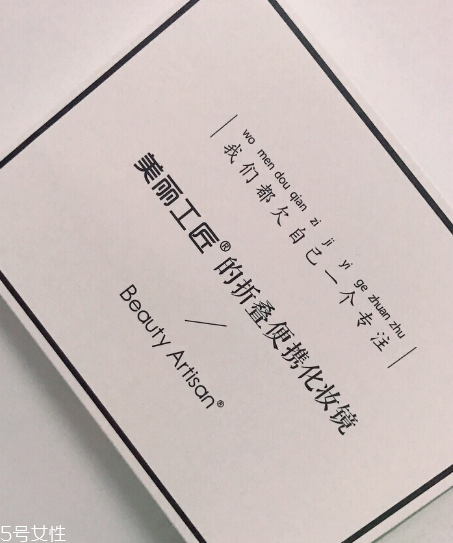 wo men dou qian zi ji yi ge zhuan zhu
我们都欠自己一个专注
美丽工匠®的折叠便携化妆镜
Beauty Artisan®
5号女性